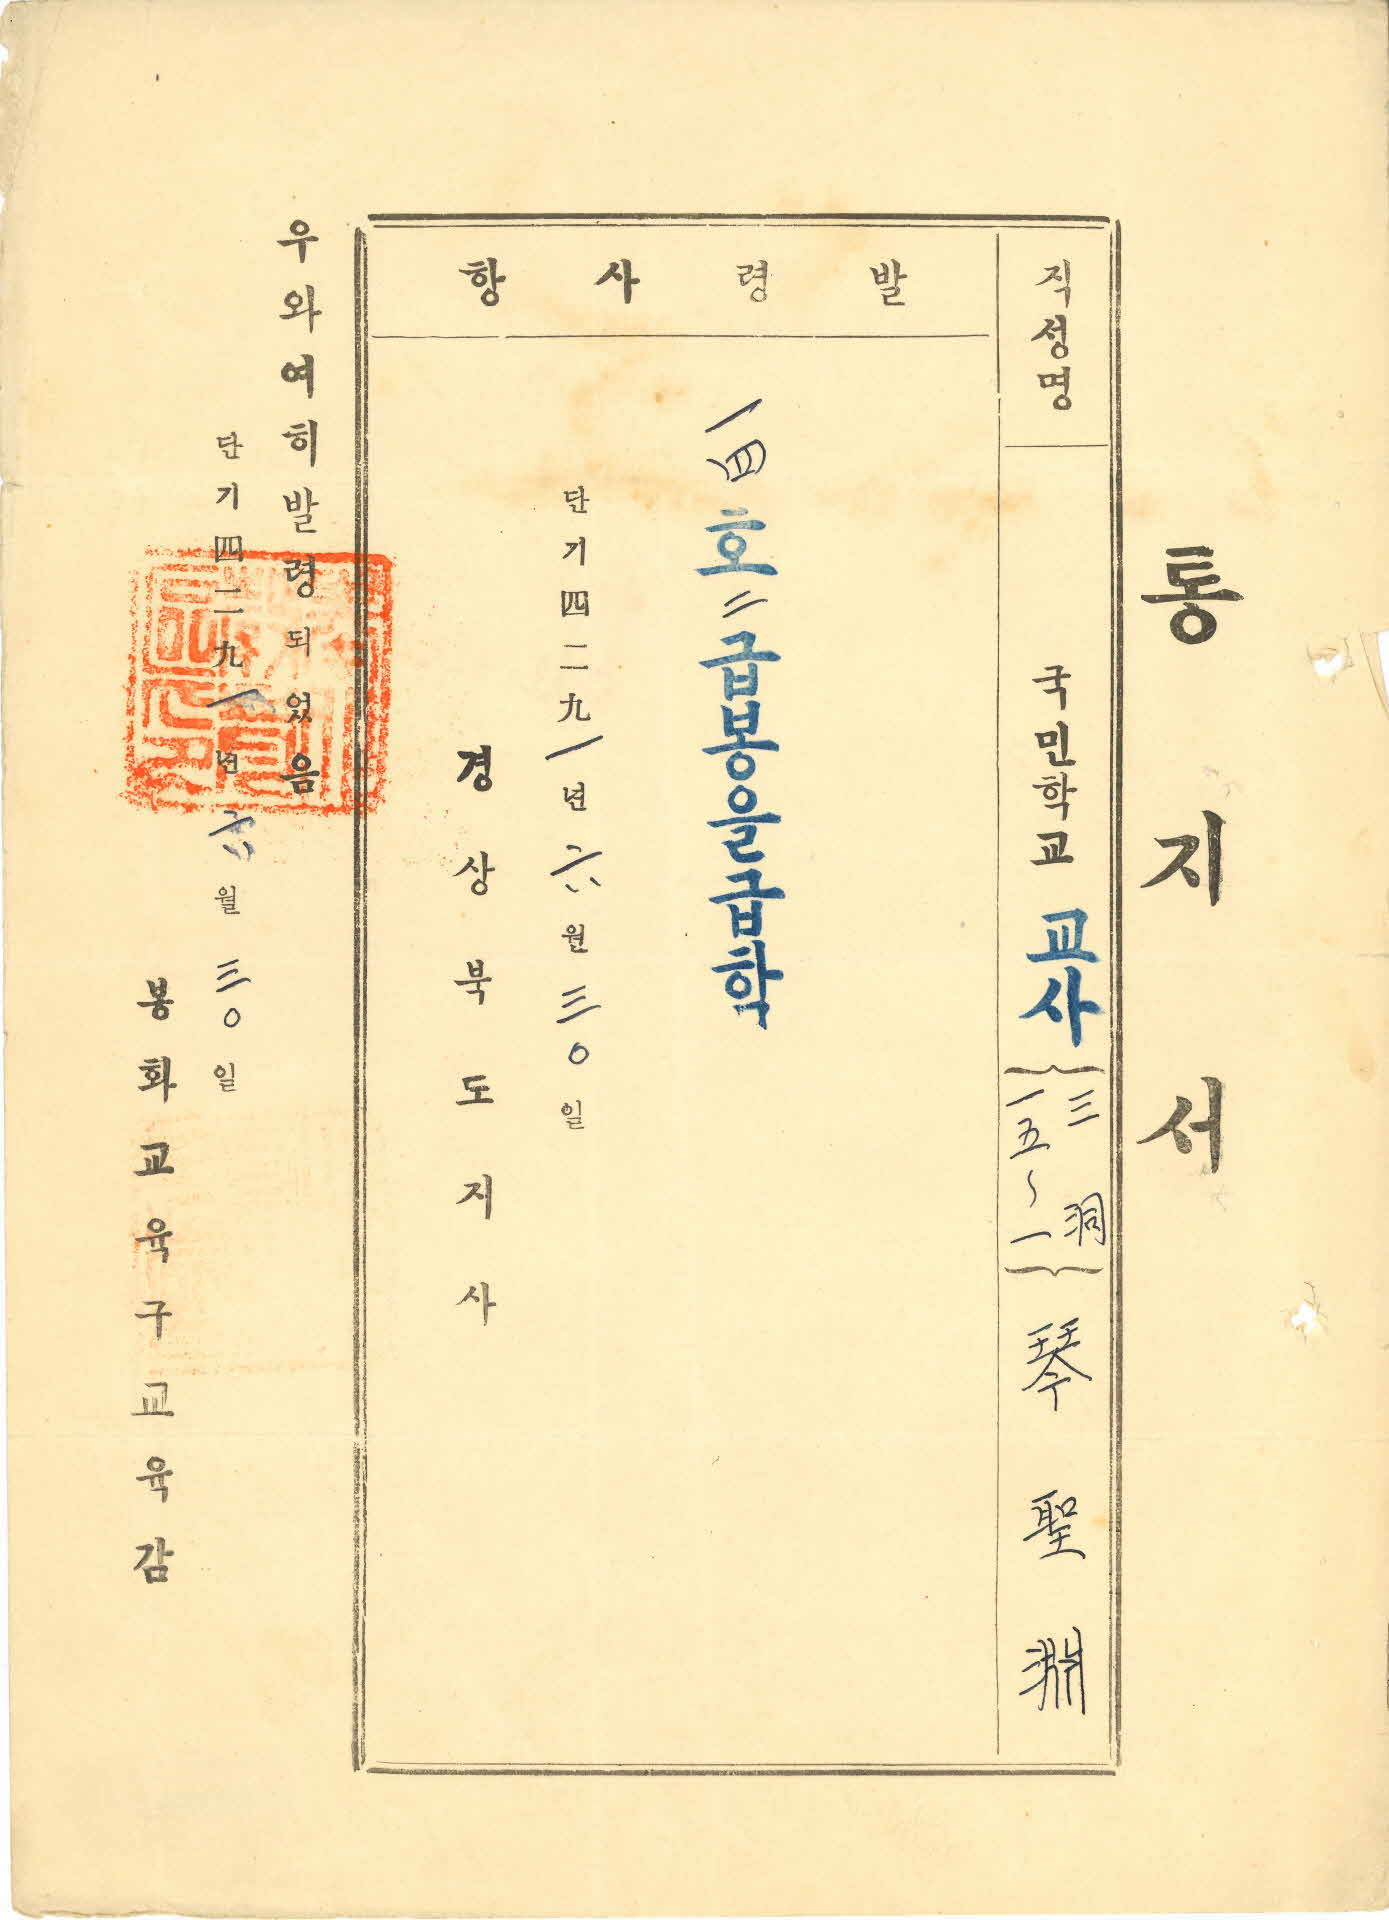 통지서
직성명
국민학교 교사
三洞
一五~一
琴聖淵
발령사항
一四호二급봉을급함
단기四二九一년六월三〇일
경상북도지사
우와여히발령되었음
단기四二九一년六월三〇일
봉화교육구교육감